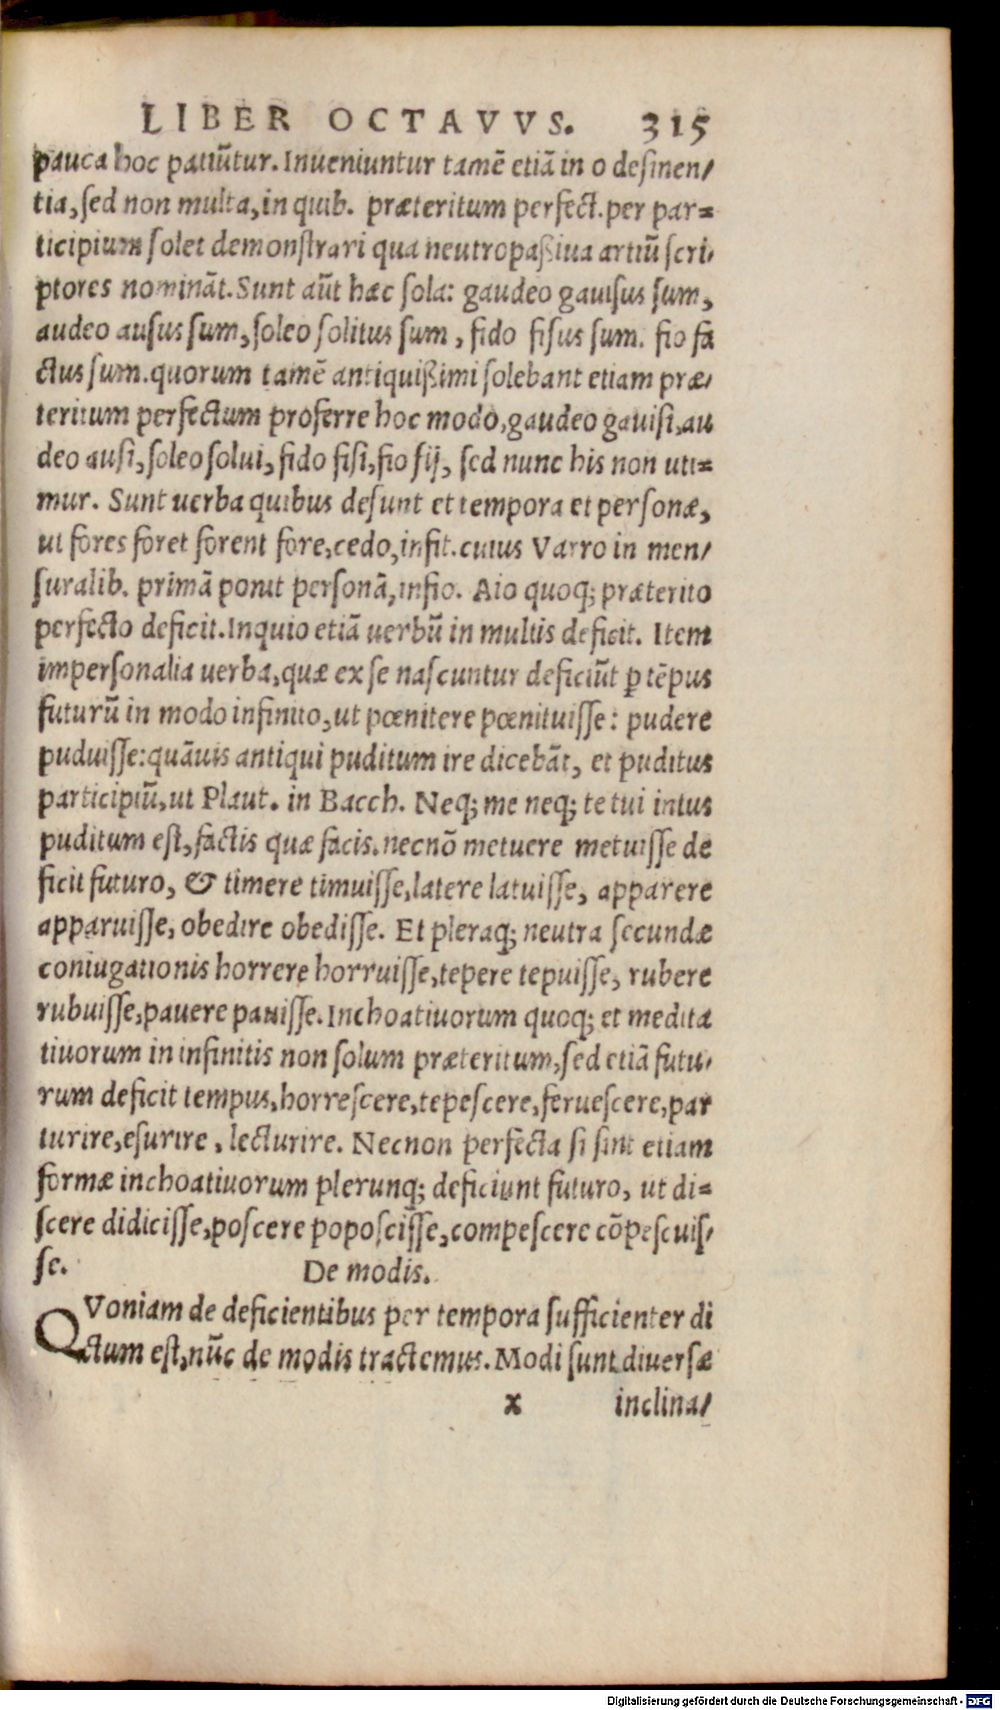 LIBER OCTAVVS. 315
pauca hoc patiũtur. Inueniuntur tamẽ etiã in o desinen/
tia, sed non multa, in quib. præteritum perfect. per par=
ticipium solet demonstrari qua neutropaßiua artiũ scri/
ptores nominãt. Sunt aũt hæc sola: gaudeo gauisus sum,
audeo ausus sum, soleo solitus sum, fido fisus sum. fio fa
ctus sum. quorum tamẽ antiquißimi solebant etiam præ/
teritum perfectum proferre hoc modo, gaudeo gauisi, au
deo ausi, soleo solui, fido fisi, fio fij, sed nunc his non uti=
mur. Sunt uerba quibus desunt et tempora et personæ,
ut fores foret forent fore, cedo, infit. cuius Varro in men/
suralib. primã ponit personã, infio. Aio quoq; præterito
perfecto deficit. Inquio etiã uerbũ in multis deficit. Item
impersonalia uerba, quæ ex se nascuntur deficiũt ꝑ tẽpus
futurũ in modo infinito, ut pœnitere pœnituisse: pudere
puduisse: quãuis antiqui puditum ire dicebãt, et puditus
participiũ, ut Plaut. in Bacch. Neq; me neq; te tui intus
puditum est, factis quæ facis. necnõ metuere metuisse de
ficit futuro, & timere timuisse, latere latuisse, apparere
apparuisse, obedire obedisse. Et pleraq; neutra secundæ
coniugationis horrere horruisse, tepere tepuisse, rubere
rubuisse, pauere pauisse. Inchoatiuorum quoq; et medita
tiuorum in infinitis non solum præteritum, sed etiã futu/
rum deficit tempus, horrescere, tepescere, feruescere, par
turire, esurire, lecturire. Necnon perfecta si sint etiam
formæ inchoatiuorum plerunq; deficiunt futuro, ut di=
scere didicisse, poscere poposcisse, compescere cõpescuis/
se.
De modis.
QVoniam de deficientibus per tempora sufficienter di
ctum est, nũc de modis tractemus. Modi sunt diuersæ
x inclina/
Digitalisierung gefördert durch die Deutsche Forschungsgemeinschaft - DFG